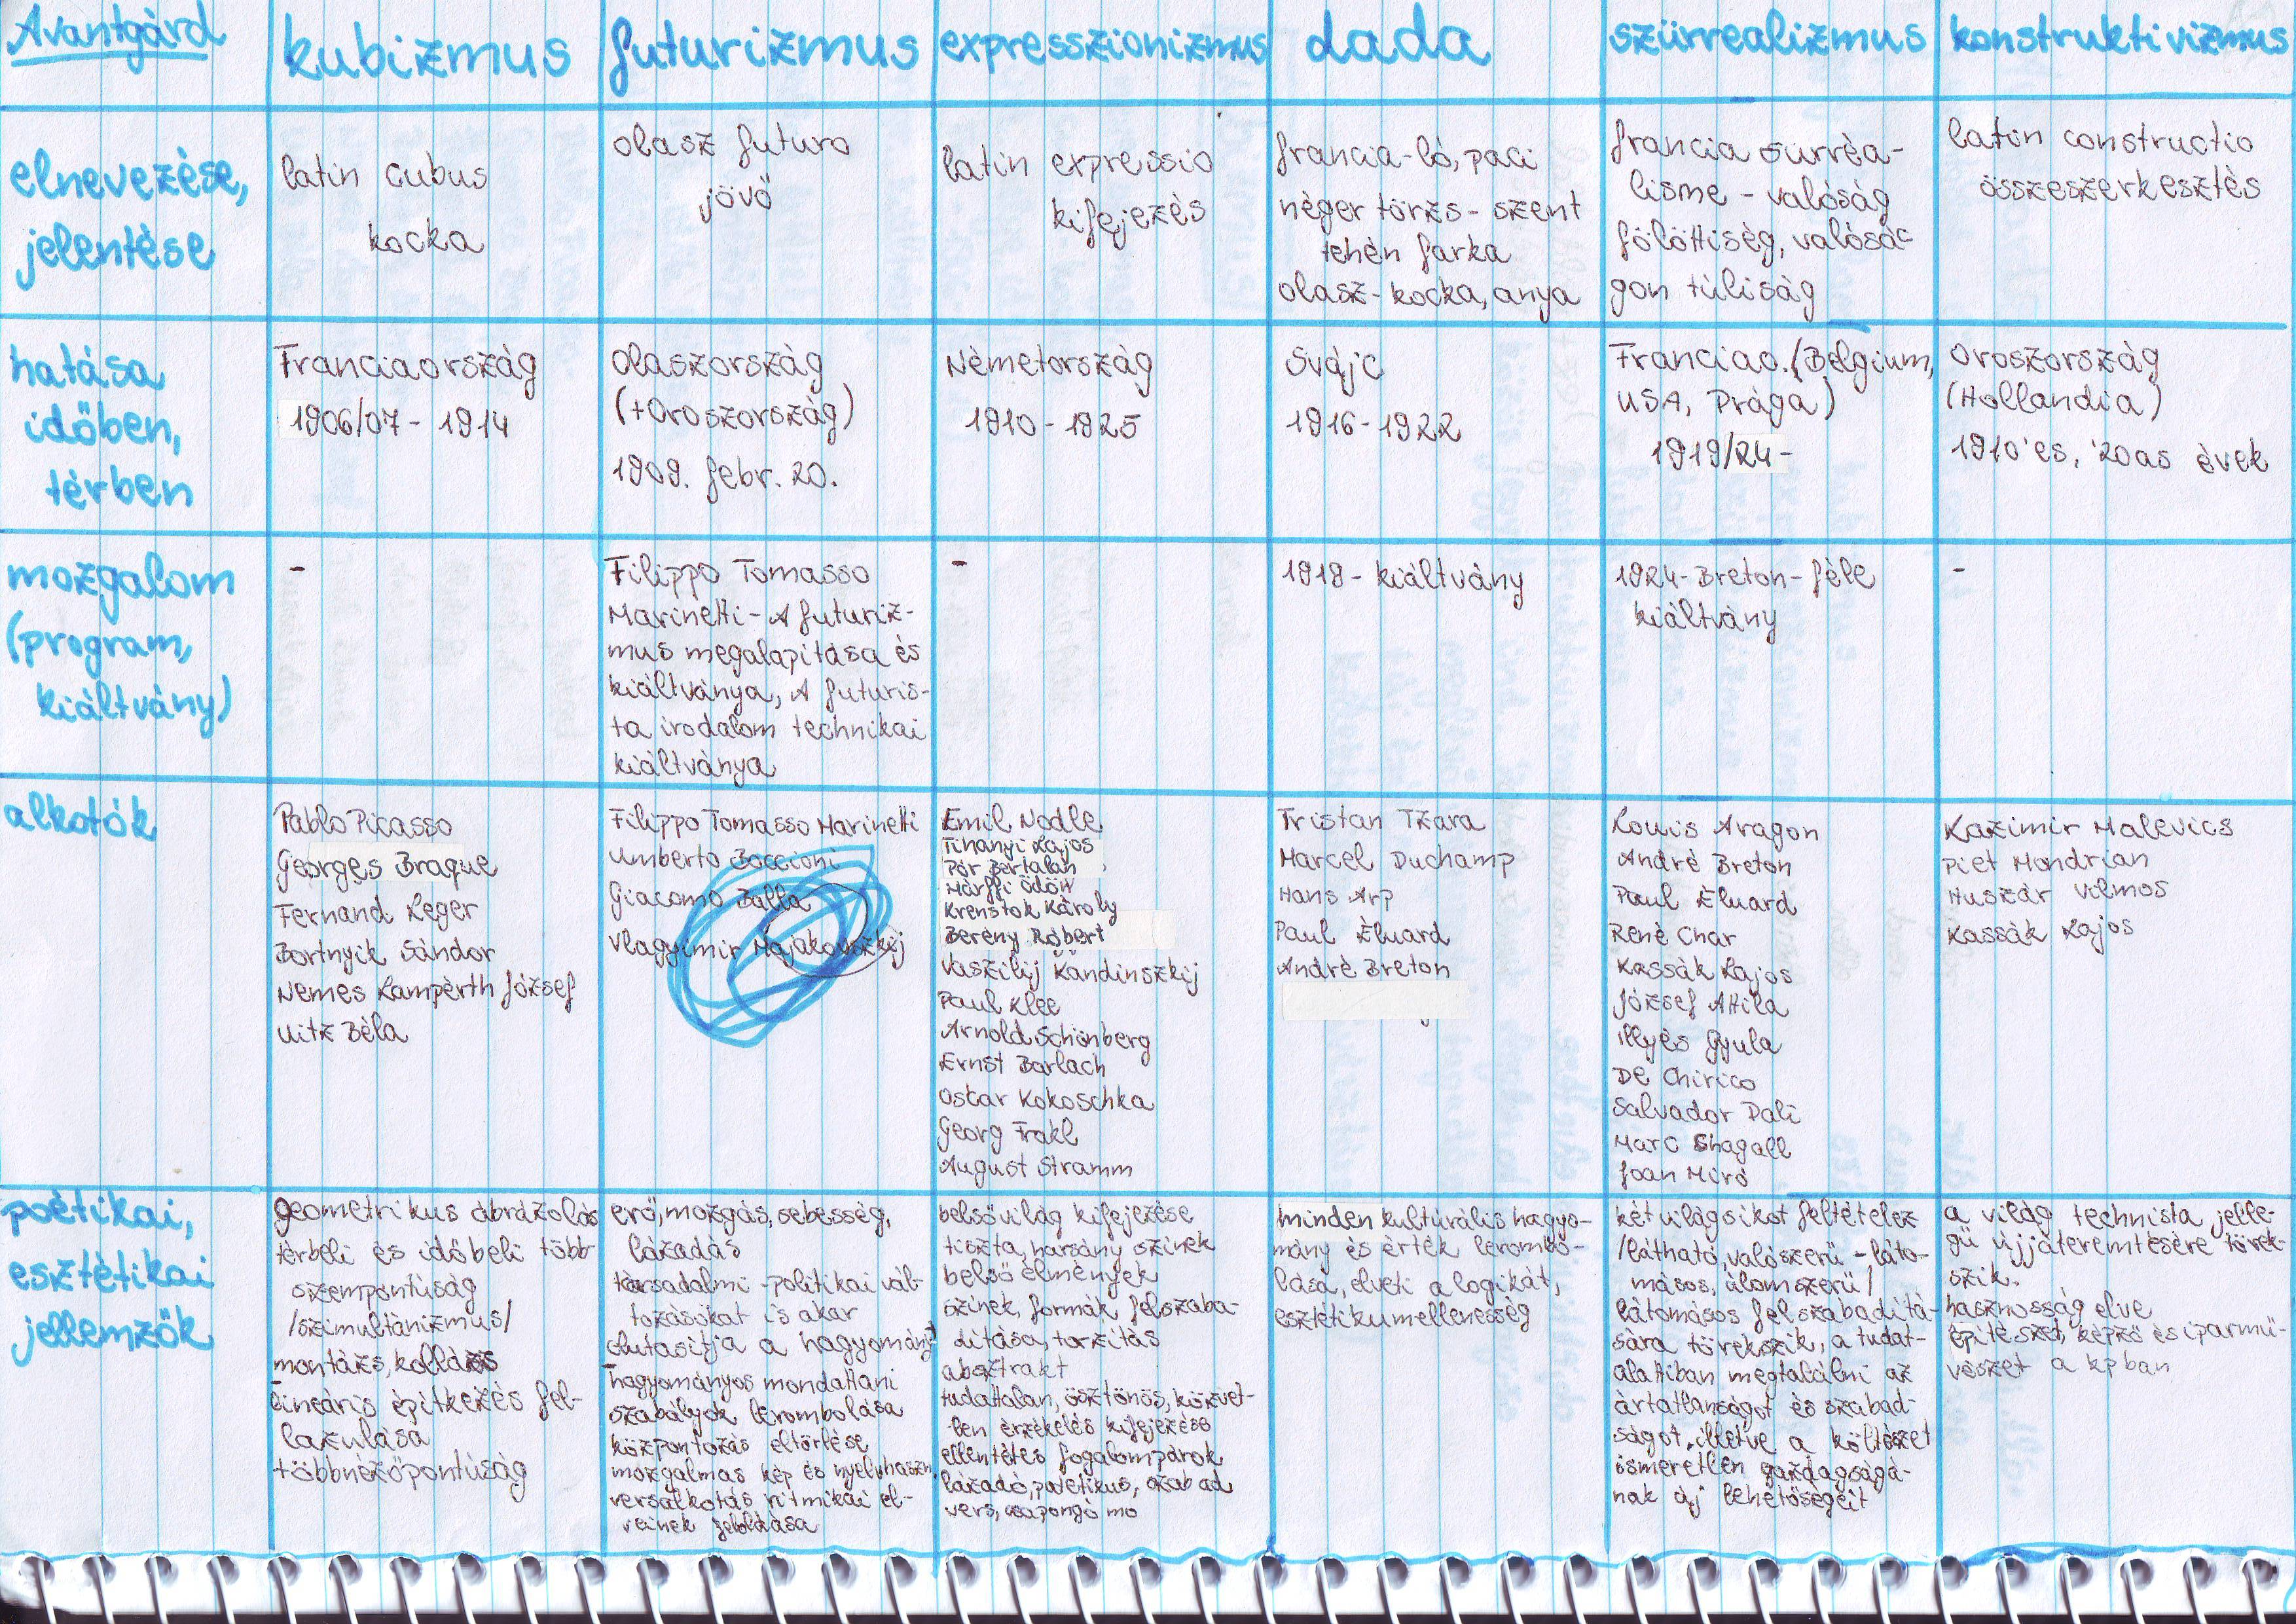 Avantgárd
kubizmus
futurizmus
expresszionizmus
dada
szürrealizmus
konstruktivizmus
elnevezése,
jelentése
latin cubus
kocka
olasz futuro
jövő
latin expressio
kifejezés
francia-ló, paci
néger törzs- szent
tehén farka
olasz- kocka, anya
francia surréa-
lisme - valóság
fölöttiség, valósá-
gon túliság
latin constructio
összeszerkesztés
hatása
időben,
térben
Franciaország
1906/07- 1914
Olaszország
(+Oroszország)
1909. febr. 20.
Németország
1910 - 1925
Svájc
1916-1922
Franciao. (Belgium,
USA, Prága)
1919/24-
Oroszország
(Hollandia)
1910'es, '20as évek
mozgalom
(program,
kiáltvány)
-
Filippo Tomasso
Marinetti - A futuriz-
mus megalapítása és
kiáltványa, A futuris-
ta irodalom technikai
kiáltványa
-
1918- kiáltvány
1924-Breton-féle
kiáltvány
-
alkotók
Pablo Picasso
Georges Braque
Fernand Leger
Bortnyik Sándor
Nemes Lampérth József
Uitz Béla
Filippo Tomasso Marinetti
Umberto Boccioni
Giacomo Balla
Vlagyimir Majakovszkij
Emil Nodle
Tihanyi Lajos
Pór Bertalan
Márffi Ödön
Krenstok Károly
Berény Róbert
Vaszilij Kandinszkij
Paul Klee
Arnold Schönberg
Ernst Barlach
Oscar Kokoschka
Georg Trakl
August Stramm
Tristan Tzara
Marcel Duchamp
Hans Arp
Paul Éluard
André Breton
Louis Aragon
André Breton
Paul Éluard
René Char
Kassák Lajos
József Attila
Illyés Gyula
De Chirico
Salvador Dali
Marc Shagall
Joan Miró
Kazimir Malevics
Piet Mondrian
Huszár Vilmos
Kassák Lajos
poétikai,
esztétikai
jellemzők
geometrikus ábrázolás
térbeli és időbeli több
szempontúság
/szimultanizmus/
montázs, kollázs
lineáris építkezés fel-
lazulása
többnézőpontúság
erő, mozgás, sebesség,
lázadás
társadalmi-politikai vál-
tozásokat is akar
elutasítja a hagyományt
hagyományos mondattani
szabályok lerombolása
központozás eltörlése
mozgalmas kép és nyelvhaszn.
versalkotás ritmikai el-
veinek feloldása
belső világ kifejezése
tiszta, harsány színek
belső élmények
színek, formák felszaba-
dítása, torzítás
absztrakt
tudattalan, ösztönös, közvet-
len érzékelés kifejezése
ellentétes fogalompárok
lázadó, patetikus, szabad
vers, csapongó mo
minden kulturális hagyo-
mány és érték lerombo-
lása, elveti a logikát,
esztétikumellenesség
két világsíkot feltételez
/látható, valószerű - láto-
másos, álomszerű/
látomásos felszabadítá-
sára törekszik, a tudat-
alattiban megtalálni az
ártatlanságot és szabad-
ságot, illetve a költészet
ismeretlen gazdagságá-
nak új lehetőségeit
a világ technista jelle-
gű újjáteremtésére törek-
szik.
hasznosság elve
építészet, képző és iparmű-
vészet a kpban